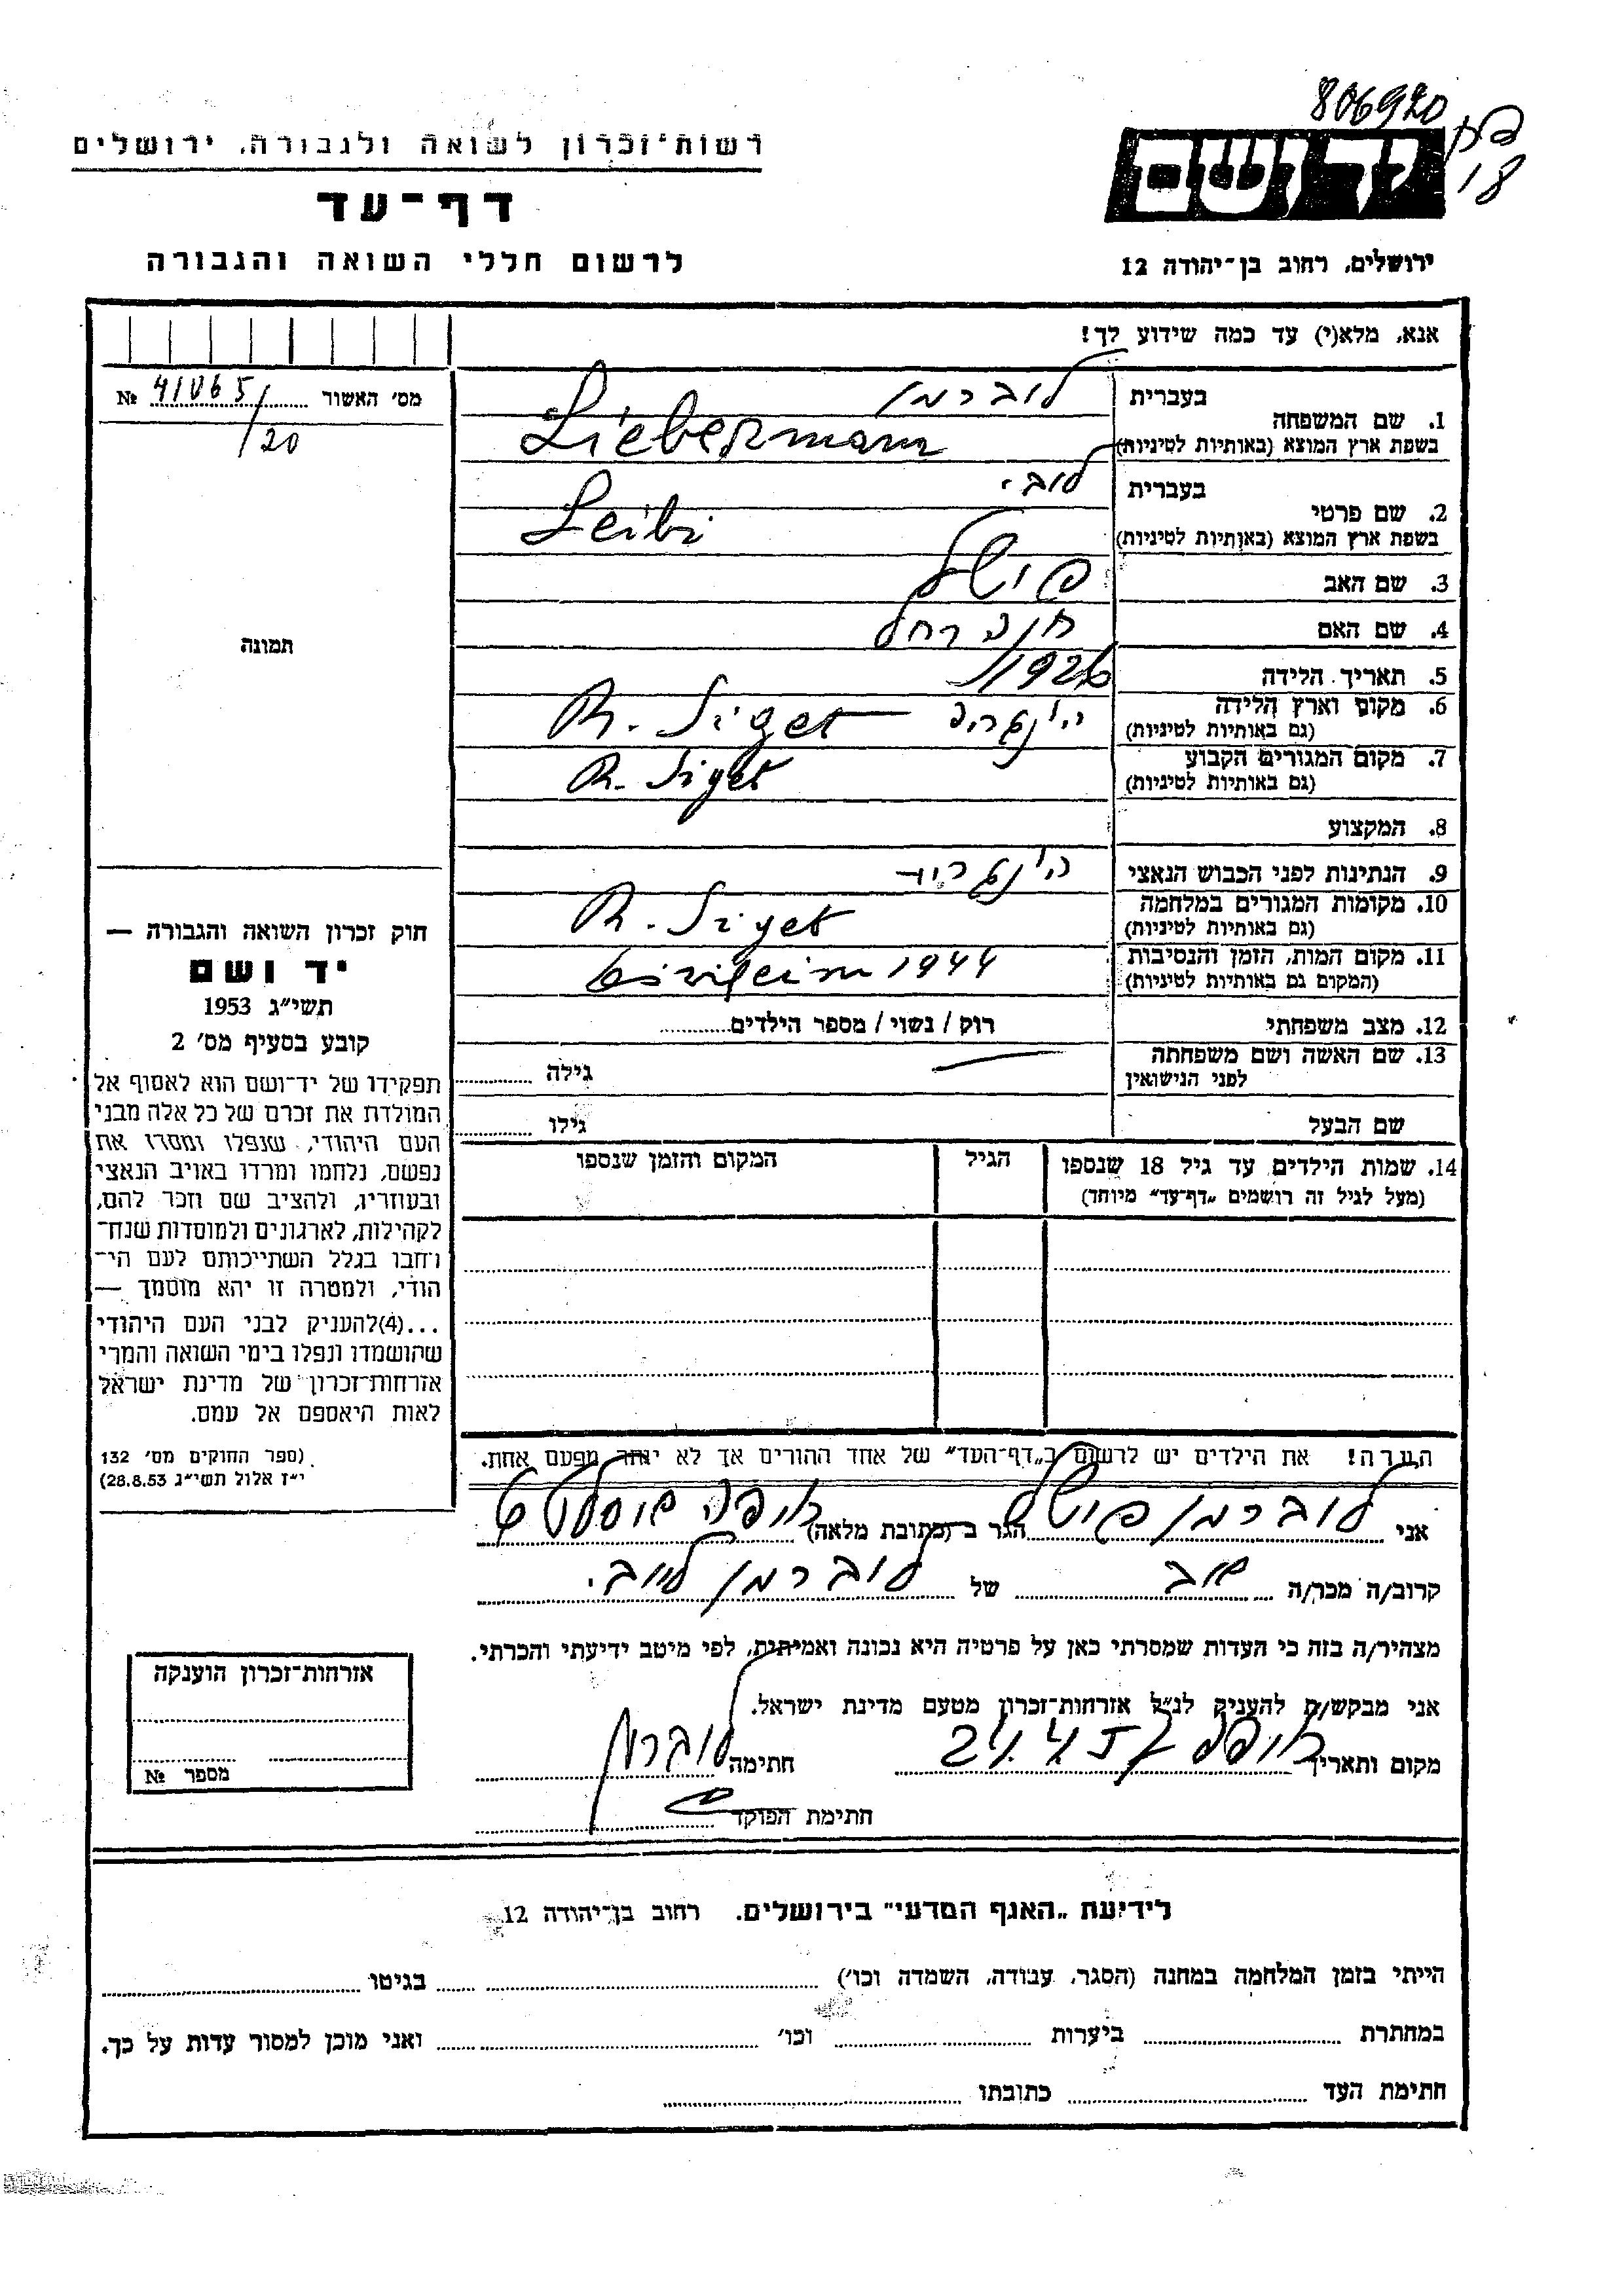 806920
18
רשות־זכרון לשואה ולגבורה, ירושלים
דף־עד
לרשום חללי השואה והגבורה
יד ושם
ירושלים, רחוב בן־יהודה 12
אנא, מלא(י) עד כמה שידוע לך!
מס׳ האשור 41065 №
/20
תמונה
1. שם המשפחה
בעברית ליברמן
בשפת ארץ המוצא (באותיות לטיניות) Liebermann
2. שם פרטי
בעברית לובי
בשפת ארץ המוצא (באותיות לטיניות) Leibi
3. שם האב פישל
4. שם האם חנה רחל
5. תאריך הלידה 1926
6. מקום וארץ הלידה
(גם באותיות לטיניות) הונגריה R. Siget
7. מקום המגורים הקבוע
(גם באותיות לטיניות) R. Siget
8. המקצוע
9. הנתינות לפני הכבוש הנאצי
10. מקומות המגורים במלחמה
(גם באותיות לטיניות) R. Siget
11. מקום המות, הזמן והנסיבות
(המקום גם באותיות לטיניות) 1944
12. מצב משפחתי רוק / נשוי / מספר הילדים
13. שם האשה ושם משפחתה
לפני הנישואין גילה
שם הבעל גילו
14. שמות הילדים עד גיל 18 שנספו הגיל המקום והזמן שנספו
(מעל לגיל זה רושמים „דף־עד״ מיוחד)
הערה! את הילדים יש לרשום ב„דף־העד״ של אחד ההורים אך לא יותר מפעם אחת.
חוק זכרון השואה והגבורה —
יד ושם
תשי״ג 1953
קובע בסעיף מס׳ 2
תפקידו של יד־ושם הוא לאסוף אל
המולדת את זכרם של כל אלה מבני
העם היהודי, שנפלו ומסרו את
נפשם, נלחמו ומרדו באויב הנאצי
ובעוזריו, ולהציב שם וזכר להם,
לקהילות, לארגונים ולמוסדות שנח־
רחבו בגלל השתייכותם לעם הי־
הודי, ולמטרה זו יהא מוסמך —
...(4)להעניק לבני העם היהודי
שהושמדו ונפלו בימי השואה והמרי
אזרחות־זכרון של מדינת ישראל
לאות היאספם אל עמם.
(ספר החוקים מס׳ 132
י״ז אלול תשי״ג 28.8.53)
אני ליברמן פישל הגר ב (כתובת מלאה) חיפה
קרוב/ה מכר/ה אב של ליברמן לייבי
מצהיר/ה בזה כי העדות שמסרתי כאן על פרטיה היא נכונה ואמיתית, לפי מיטב ידיעתי והכרתי.
אני מבקש/ת להעניק לנ״ל אזרחות־זכרון מטעם מדינת ישראל.
מקום ותאריך חיפה 24.4.57 חתימה ליברמן
חתימת הפוקד
אזרחות־זכרון הוענקה
מספר №
לידיעת „האגף המדעי״ בירושלים. רחוב בן־יהודה 12
הייתי בזמן המלחמה במחנה (הסגר, עבודה, השמדה וכו׳) בגיטו
במחתרת ביערות וכו׳ ואני מוכן למסור עדות על כך.
חתימת העד כתובתו